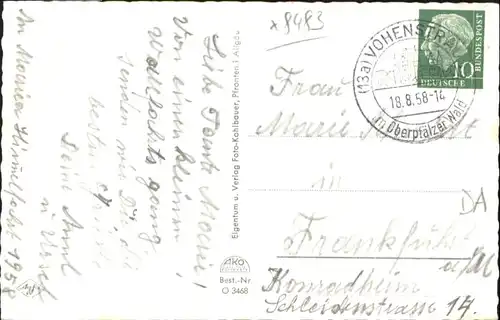 Liebe Tante Marie!
Von einem kleinen
Wallfahrtsgang
senden wir Dir die
besten Grüße
Deine Anni
u. Ursel
An Mariä Himmelfahrt 1958
Eigentum u. Verlag Foto-Kohlbauer, Pfronten i. Allgäu
AKO
Best.-Nr.
O 3468
x 8483
(13a) VOHENSTRAUSS
18.8.58-14
im Oberpfälzer Wald
10
DEUTSCHE
BUNDESPOST
Frau
Marie
in
Frankfurt
a/M
Konradheim
Schleidenstrasse 14.
DA